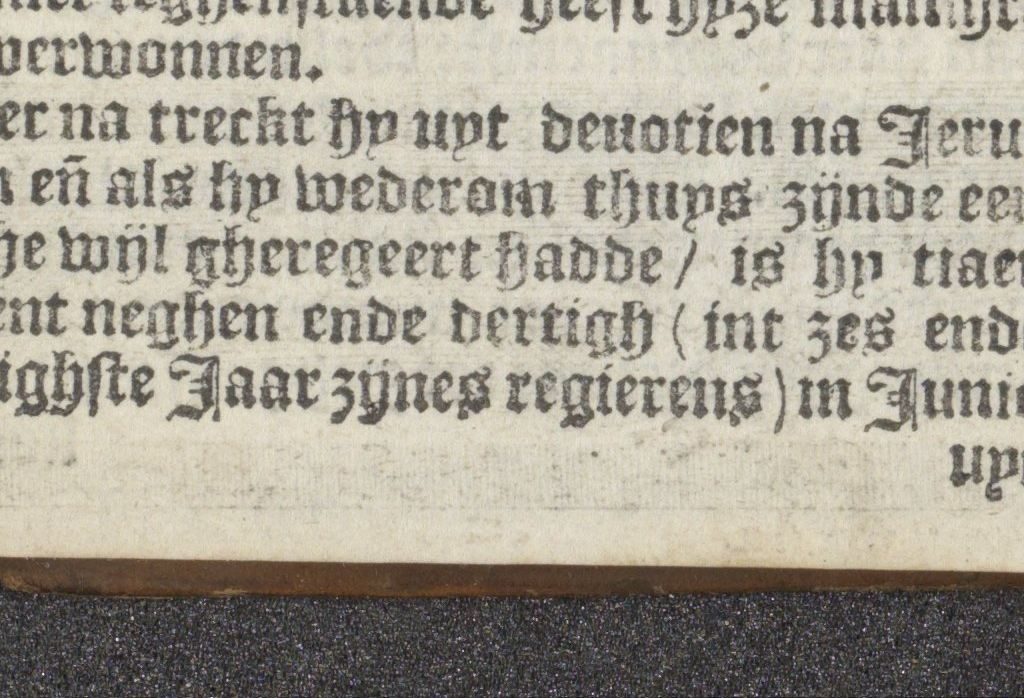 heeft hyze
verwonnen.
er na treckt hy uyt devotien na Jeru
en̄ als hy wederom thuys zijnde een
he wijl gheregeert hadde / is hy
ent neghen ende dertigh (int zes end
ighste Jaar zijnes regierens) in Juni
uy